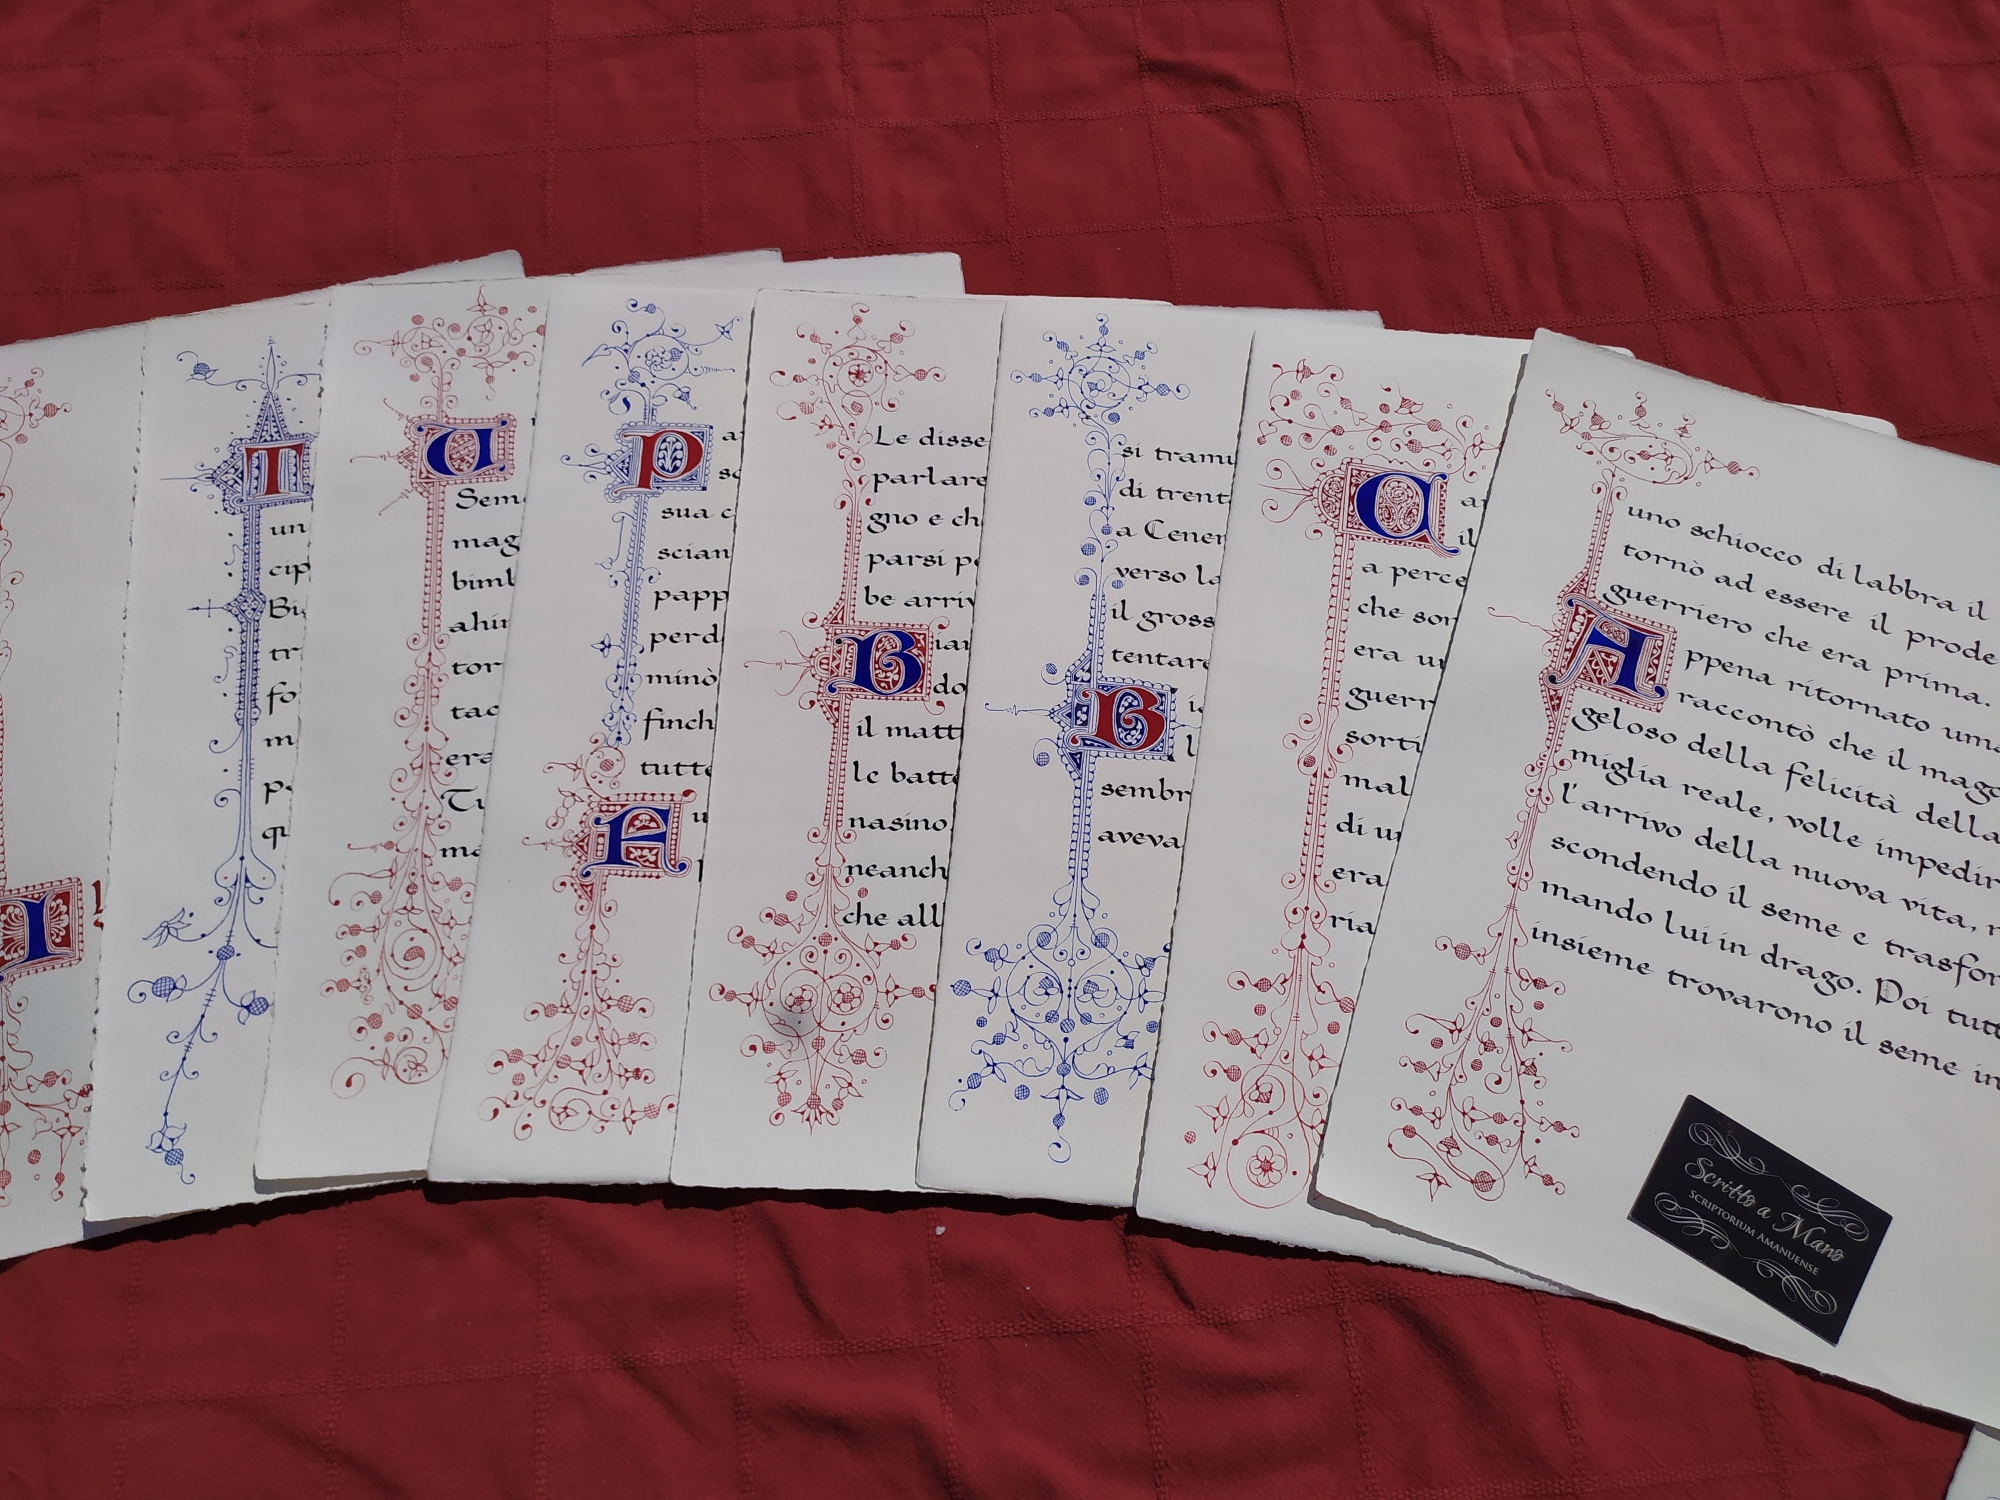 I
T
un
cip
Bi
tr
fo
m
p
q
U
Sem
mag
bimb
ahim
tor
tac
era
Tu
me
P
a
se
sua c
scian
papp
perd
minò
finch
tutte
A
u
Le disse
parlare
gno e ch
parsi pe
be arriv
B
ian
do
il matt
le batte
nasino
neanch
che all
si tramu
di trent
a Cener
verso la
il gross
tentare
B
l
sembr
aveva
C
ar
il
a perce
che son
era un
guerr
sorti
mal
di un
era
ria
uno schiocco di labbra il
tornò ad essere il prode
guerriero che era prima.
Appena ritornato uma
raccontò che il mago
geloso della felicità della
miglia reale, volle impedir
l'arrivo della nuova vita, n
scondendo il seme e trasfor
mando lui in drago. Poi tutt
insieme trovarono il seme in
Scritto a Mano
SCRIPTORIUM AMANUENSE